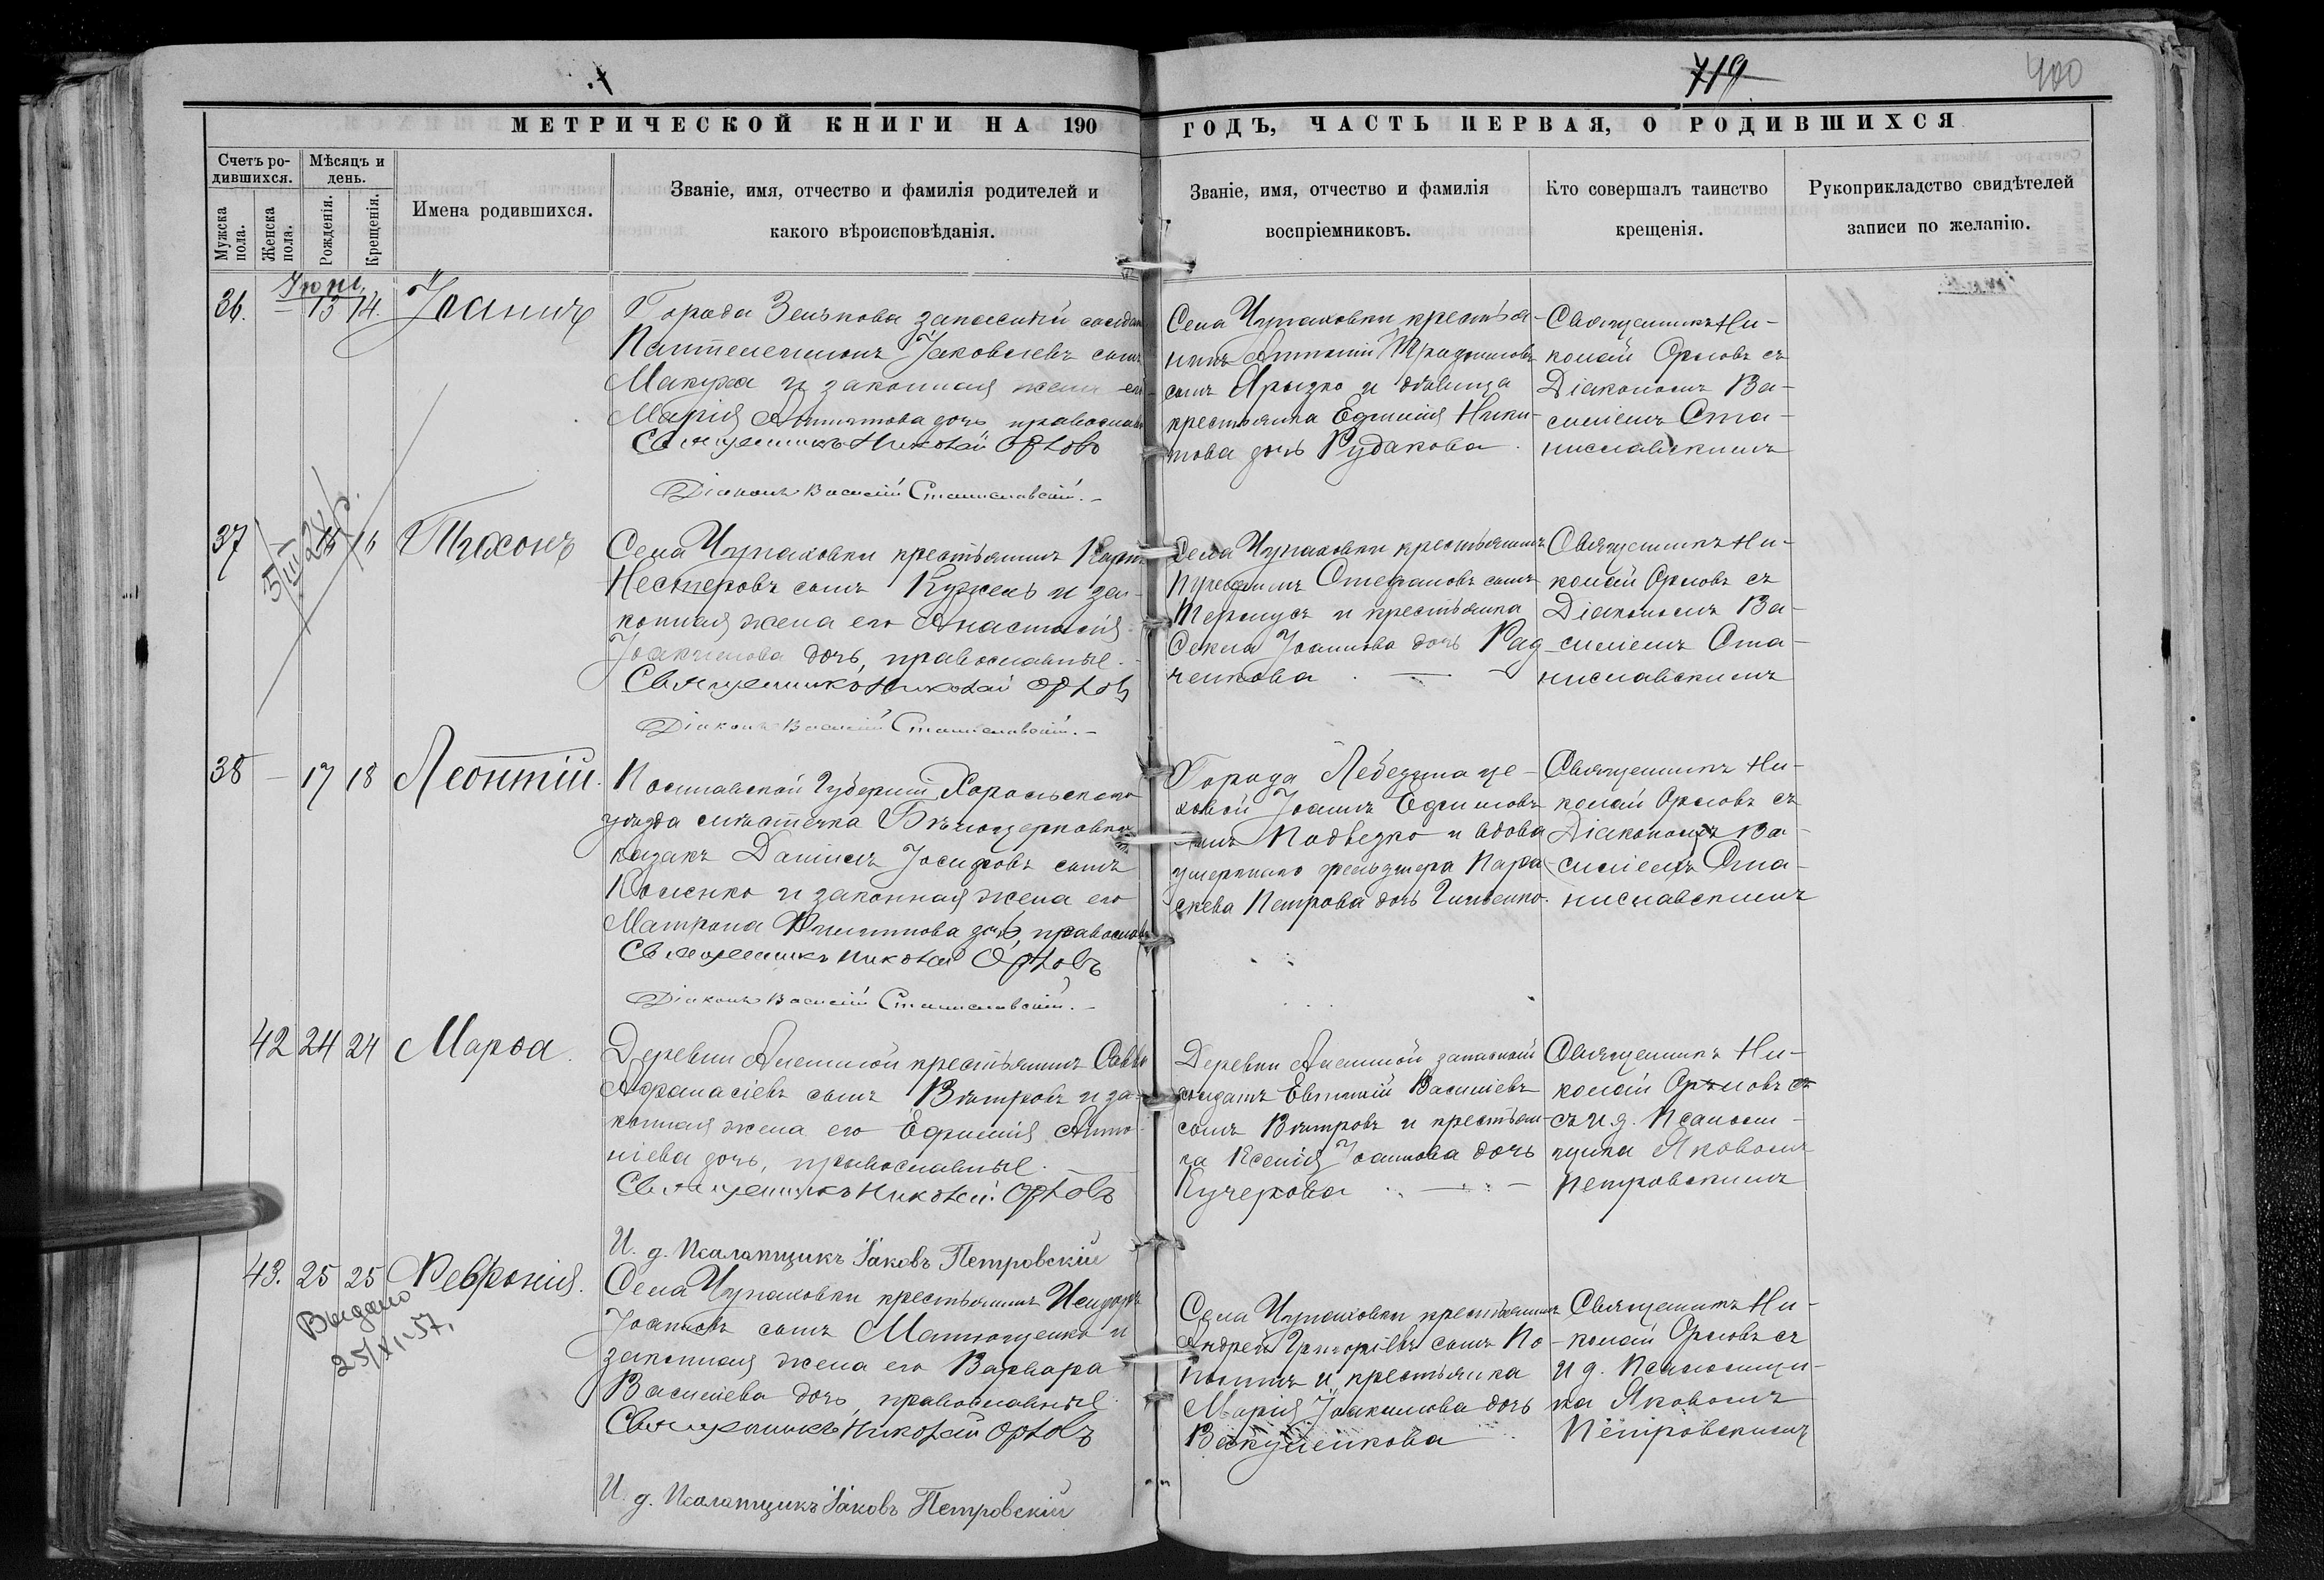 719
400
МЕТРИЧЕСКОЙ КНИГИ НА 190
ГОДЪ, ЧАСТЬ ПЕРВАЯ, О РОДИВШИХСЯ
Счетъ ро-
дившихся.
Мѣсяцъ и
день.
Мужска
пола.
Женска
пола.
Рожденія.
Крещенія.
Имена родившихся.
Званіе, имя, отчество и фамилія родителей и
какого вѣроисповѣданія.
Званіе, имя, отчество и фамилія
воспріемниковъ.
Кто совершалъ таинство
крещенія.
Рукоприкладство свидѣтелей
записи по желанію.
36. — 13 14. Іоаннъ
Города Зенькова запасный
Пантелеимонъ Іаковлевъ сынъ
и законная жена
Марія дочь
Священникъ Николай Орловъ
Діаконъ Василій Станиславскій. —
Села Чупаховки крестья-
нинъ
сынъ и дѣвица
крестьянка Ефимія Ники-
това дочь Рудакова
Священникъ Ни-
колай Орловъ съ
Діакономъ Ва-
силіемъ Ста-
ниславскимъ
37 16 Тихонъ
Села Чупаховки крестьянинъ
Нестеровъ сынъ Кужель и за-
конная жена его Анастасія
Іоакимова дочь, православные.
Священникъ Николай Орловъ
Діаконъ Василій Станиславскій. —
Села Чупаховки крестьянинъ
Стефановъ сынъ
и крестьянка
Іоаннова дочь Рад-
ченкова
Священникъ Ни-
колай Орловъ съ
Діакономъ Ва-
силіемъ Ста-
ниславскимъ
38 — 17 18 Леонтій
Полтавской Губерніи Хорольскаго
уѣзда мѣстечка
казакъ Даніилъ Іосифовъ сынъ
и законная жена его
Матрона Филиппова дочь,
Священникъ Николай Орловъ
Діаконъ Василій Станиславскій. —
Города Лебедина це-
ховой Іоаннъ Ефимовъ
сынъ и вдова
умершаго фельдшера Пара-
скева Петрова дочь
Священникъ Ни-
колай Орловъ съ
Діакономъ Ва-
силіемъ Ста-
ниславскимъ
42 24 24 Марѳа
Деревни крестьянинъ Савва
Аѳанасіевъ сынъ Вѣтровъ и за-
конная жена его Ефимія Анто-
ніева дочь, православные.
Священникъ Николай Орловъ
И. д. Псаломщикъ Іаковъ Петровскій
Деревни запасный
солдатъ Евгеній Василіевъ
сынъ Вѣтровъ и крестьян-
ка Ксенія Іоаннова дочь
Кучерова
Священникъ Ни-
колай Орловъ
съ и. д. Псалом-
щика Яковомъ
Петровскимъ
43. 25 25 Февронія.
Выдано
25/XI-57.
Села Чупаховки крестьянинъ Исидоръ
Іоанновъ сынъ Матющенко и
законная жена его Варвара
Василіева дочь, православные
Священникъ Николай Орловъ
И. д. Псаломщикъ Іаковъ Петровскій
Села Чупаховки крестьянинъ
Андрей Григоріевъ сынъ
и крестьянка
Марія Іоакимова дочь
Вакуленкова
Священникъ Ни-
колай Орловъ съ
и д. Псаломщи-
ка Яковомъ
Петровскимъ